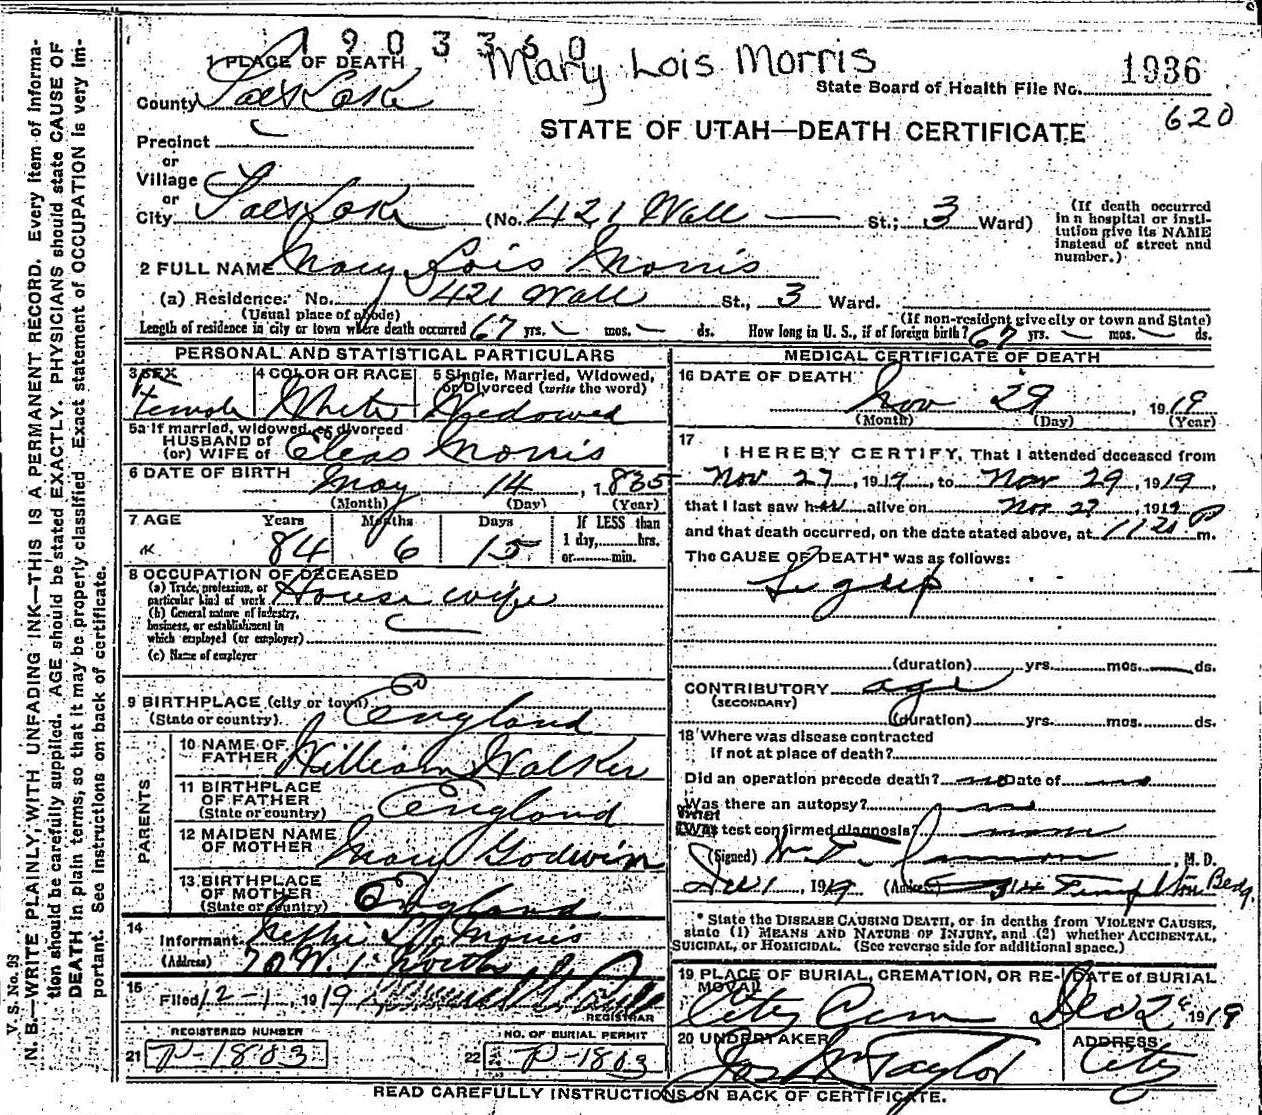 1903360
Mary Lois Morris
1 PLACE OF DEATH
State Board of Health File No. 1936
County Salt Lake
620
STATE OF UTAH—DEATH CERTIFICATE
Precinct
or
Village
or
City Salt Lake (No. 421 Wall St.; 3 Ward)
(If death occurred in a hospital or institution give its NAME instead of street and number.)
2 FULL NAME Mary Lois Morris
(a) Residence. No. 421 Wall St., 3 Ward.
(Usual place of abode) (If non-resident give city or town and State)
Length of residence in city or town where death occurred 67 yrs. — mos. — ds. How long in U. S., if of foreign birth? 67 yrs. — mos. — ds.
PERSONAL AND STATISTICAL PARTICULARS
3 SEX 4 COLOR OR RACE 5 Single, Married, Widowed, or Divorced (write the word)
Female White Widowed
5a If married, widowed, or divorced
HUSBAND of
(or) WIFE of Elias Morris
6 DATE OF BIRTH May 14, 1835
(Month) (Day) (Year)
7 AGE Years Months Days If LESS than
84 6 15 1 day,......hrs.
or......min.
8 OCCUPATION OF DECEASED
(a) Trade, profession, or
particular kind of work Housewife
(b) General nature of industry,
business, or establishment in
which employed (or employer)
(c) Name of employer
9 BIRTHPLACE (city or town)
(State or country) England
PARENTS
10 NAME OF
FATHER William Walker
11 BIRTHPLACE
OF FATHER
(State or country) England
12 MAIDEN NAME
OF MOTHER Mary Godwin
13 BIRTHPLACE
OF MOTHER
(State or country) England
14
Informant Nephi L. Morris
(Address) 70 W. 1st North St
15
Filed 12-1, 1919
REGISTRAR
REGISTERED NUMBER NO. OF BURIAL PERMIT
21 P-1803 22 P-1803
MEDICAL CERTIFICATE OF DEATH
16 DATE OF DEATH
Nov 29, 1919
(Month) (Day) (Year)
17
I HEREBY CERTIFY, That I attended deceased from
Nov 27, 1919, to Nov 29, 1919,
that I last saw her alive on Nov 27 1919
and that death occurred, on the date stated above, at 11 20 P m.
The CAUSE OF DEATH* was as follows:
Lagrip
(duration) yrs. mos. ds.
CONTRIBUTORY age
(SECONDARY)
(duration) yrs. mos. ds.
18 Where was disease contracted
if not at place of death?
Did an operation precede death? no Date of
Was there an autopsy? no
What test confirmed diagnosis?
(Signed) , M. D.
Dec 1, 1919 (Address) 314 Templeton Bldg.
* State the DISEASE CAUSING DEATH, or in deaths from VIOLENT CAUSES,
state (1) MEANS AND NATURE OF INJURY, and (2) whether ACCIDENTAL,
SUICIDAL, or HOMICIDAL. (See reverse side for additional space.)
19 PLACE OF BURIAL, CREMATION, OR REMOVAL DATE of BURIAL
City Cem Dec 2d 1919
20 UNDERTAKER ADDRESS
Jos Wm Taylor City
READ CAREFULLY INSTRUCTIONS ON BACK OF CERTIFICATE.
V. S. No. 98
N. B.—WRITE PLAINLY, WITH UNFADING INK—THIS IS A PERMANENT RECORD. Every item of informa-
tion should be carefully supplied. AGE should be stated EXACTLY. PHYSICIANS should state CAUSE OF
DEATH in plain terms, so that it may be properly classified. Exact statement of OCCUPATION is very im-
portant. See instructions on back of certificate.